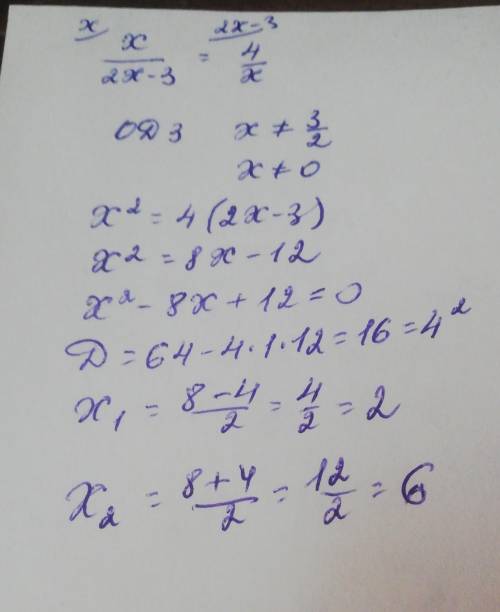 x 2x-3
x/(2x-3) = 4/x
ОДЗ x ≠ 3/2
x ≠ 0
x² = 4(2x-3)
x² = 8x - 12
x² - 8x + 12 = 0
D = 64 - 4·1·12 = 16 = 4²
x₁ = (8-4)/2 = 4/2 = 2
x₂ = (8+4)/2 = 12/2 = 6